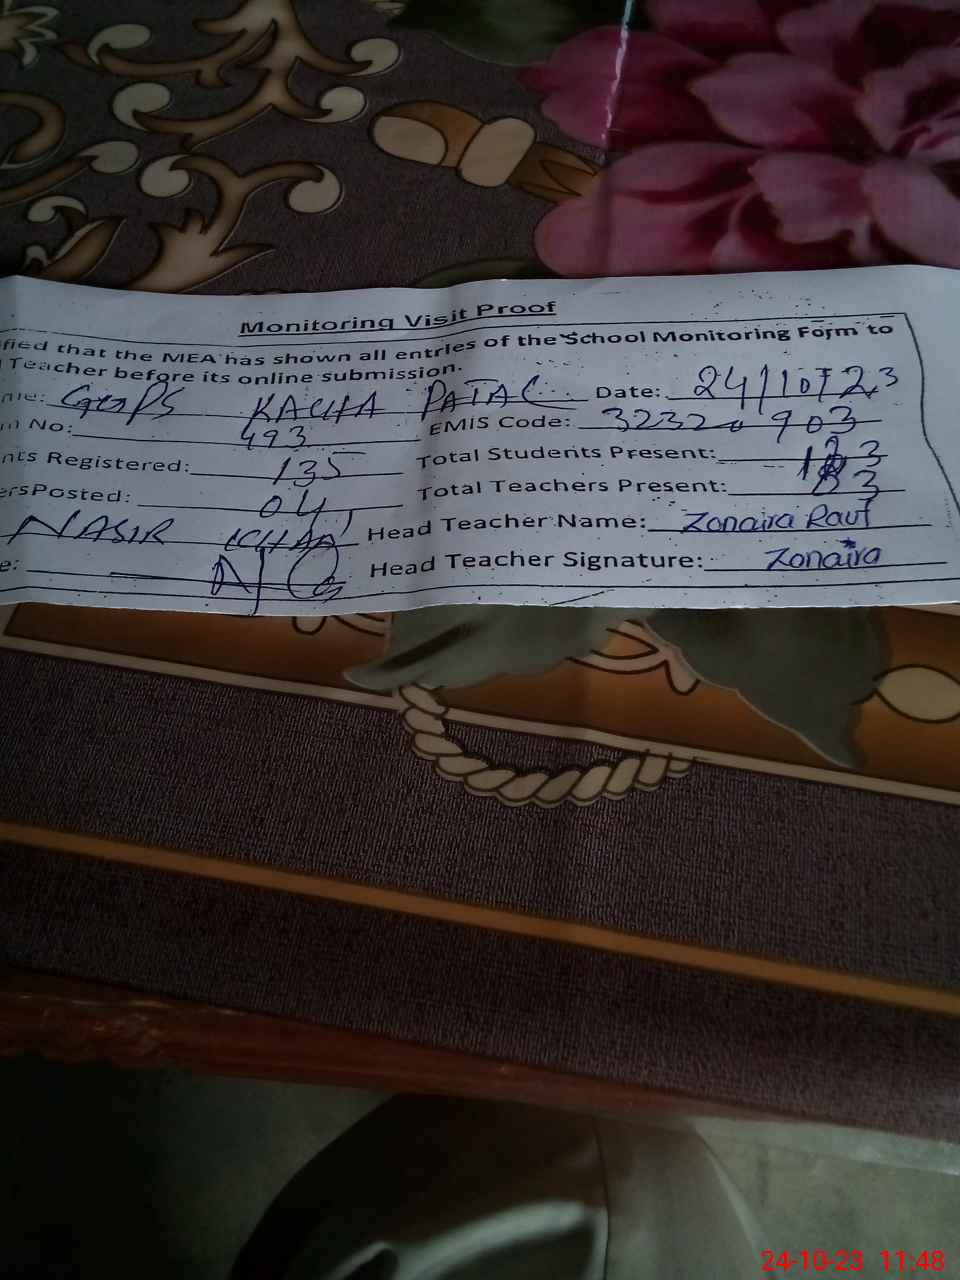 Monitoring Visit Proof
fied that the MEA has shown all entries of the School Monitoring Form to
Teacher before its online submission.
me: GGPS KACHA PATAC Date: 24/10/23
No: 493 EMIS Code: 3232 903
nts Registered: 135 Total Students Present:
ersPosted: 04 Total Teachers Present: 03
NASIR KHAN Head Teacher Name: Zonaira Rauf
e: Head Teacher Signature: Zonaira
24-10-23 11:48